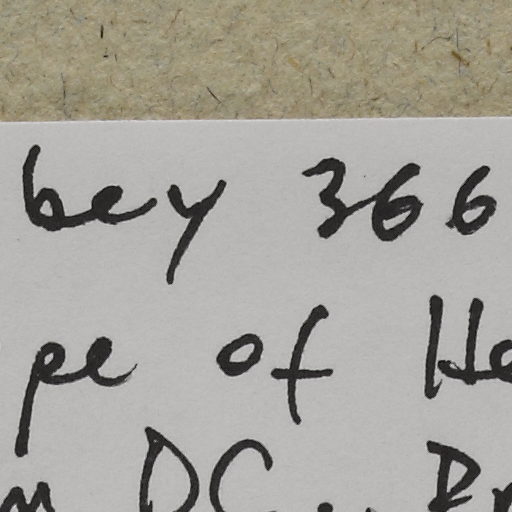 bey 366
pe of He
m DC.. Br